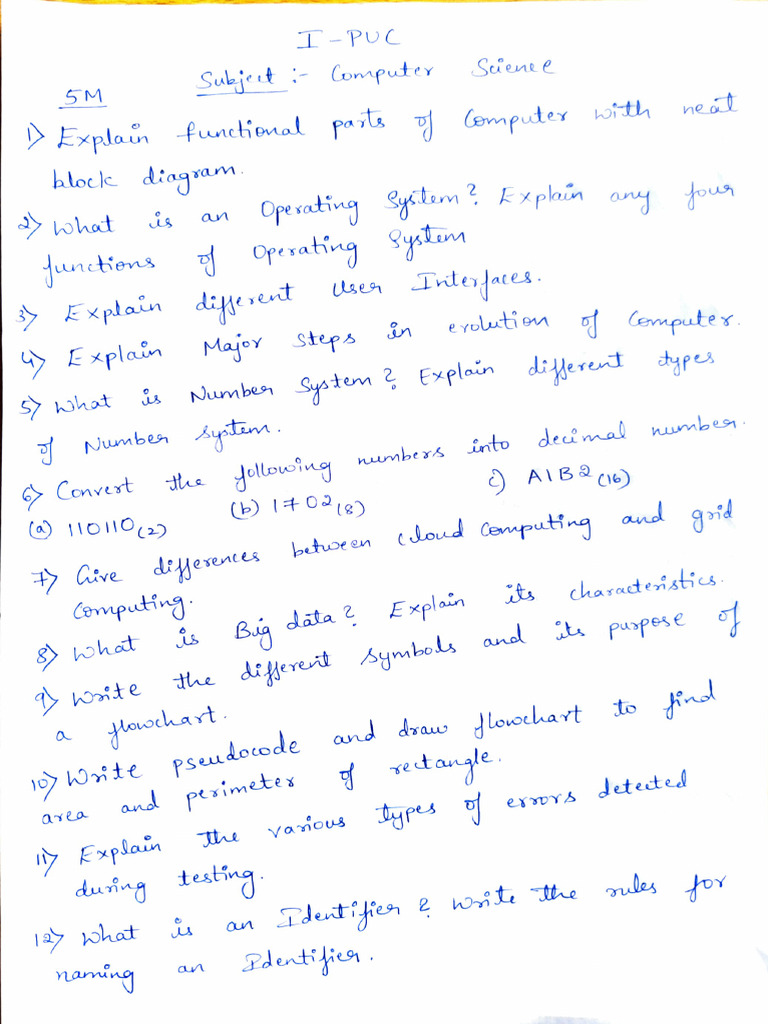 I - PUC
Subject :- Computer Science
5M
1) Explain functional parts of Computer with neat
block diagram.
2) What is an Operating System? Explain any four
functions of Operating System
3) Explain different User Interfaces.
4) Explain Major steps in evolution of Computer.
5) What is Number System? Explain different types
of Number system.
6) Convert the following numbers into decimal number.
(a) 110110(2) (b) 1702(8) c) A1B2(16)
7) Give differences between cloud computing and grid
computing.
8) What is Big data? Explain its characteristics.
9) Write the different symbols and its purpose of
a flowchart.
10) Write pseudocode and draw flowchart to find
area and perimeter of rectangle.
11) Explain the various types of errors detected
during testing.
12) What is an Identifier? Write the rules for
naming an Identifier.